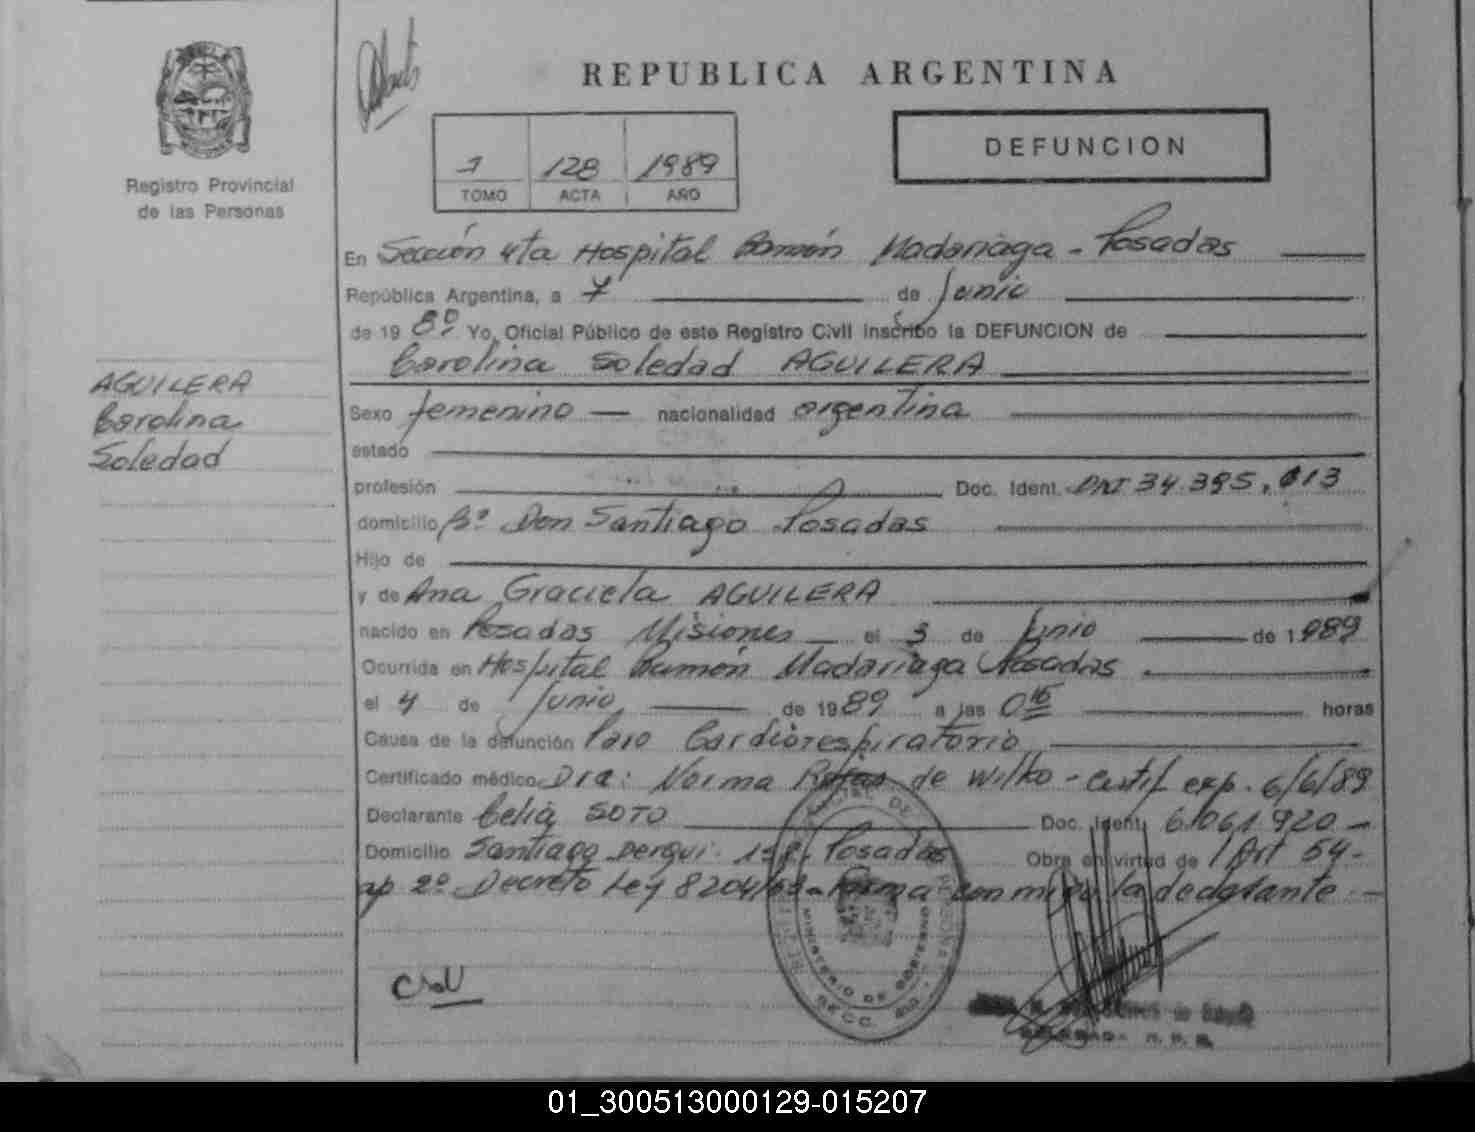 REPUBLICA ARGENTINA
Registro Provincial
de las Personas
1 128 1989
TOMO ACTA AÑO
DEFUNCION
AGUILERA
Carolina
Soledad
En Sección 4ta Hospital Ramón Madariaga - Posadas
República Argentina, a 7 de Junio
de 1989 Yo, Oficial Público de este Registro Civil inscribo la DEFUNCION de
Carolina Soledad AGUILERA
Sexo femenino nacionalidad argentina
estado
profesión Doc. Ident. DNI 34.395.013
domicilio Bº Don Santiago Posadas
Hijo de
y de Ana Graciela AGUILERA
nacido en Posadas Misiones el 3 de Junio de 1989
Ocurrida en Hospital Ramón Madariaga Posadas
el 4 de Junio de 1989 a las 0 horas
Causa de la defunción Paro Cardiorespiratorio
Certificado médico Dra: Norma Rojas de Wilko - Certif exp. 6/6/89
Declarante Celia SOTO Doc. Ident. 6.061.920 -
Domicilio Santiago Derqui Posadas Obra en virtud de Art 54-
ap 2º Decreto Ley 8204/63 - Firma con migo la declarante -
MINISTERIO DE GOBIERNO
01_300513000129-015207